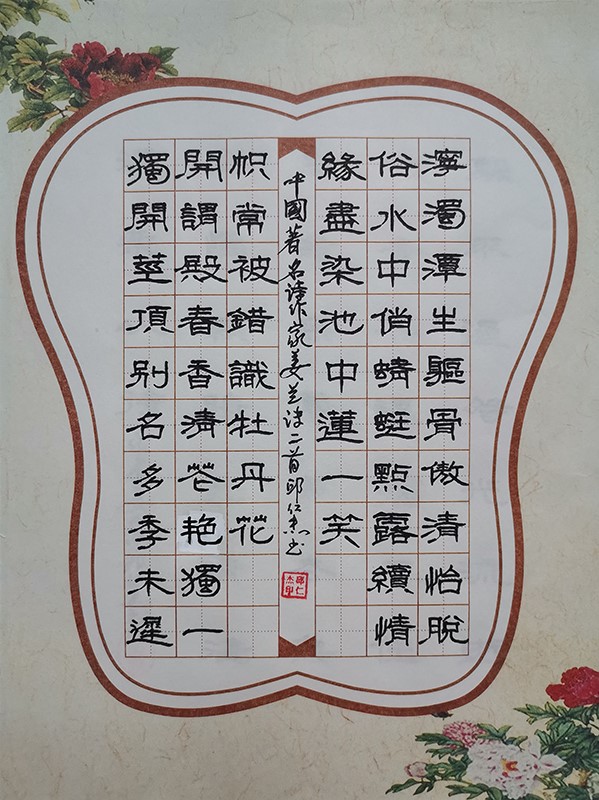 濘濁潭生軀骨傲清怡脫
俗水中俏蜻蜓點露續情
緣盡染池中蓮一笑
獨開莖頂别名多季未遲
開謂殿春香清花艳獨一
帜常被錯識牡丹花
中國著名詩作家姜诗二首邱仁杰书
邱仁杰印